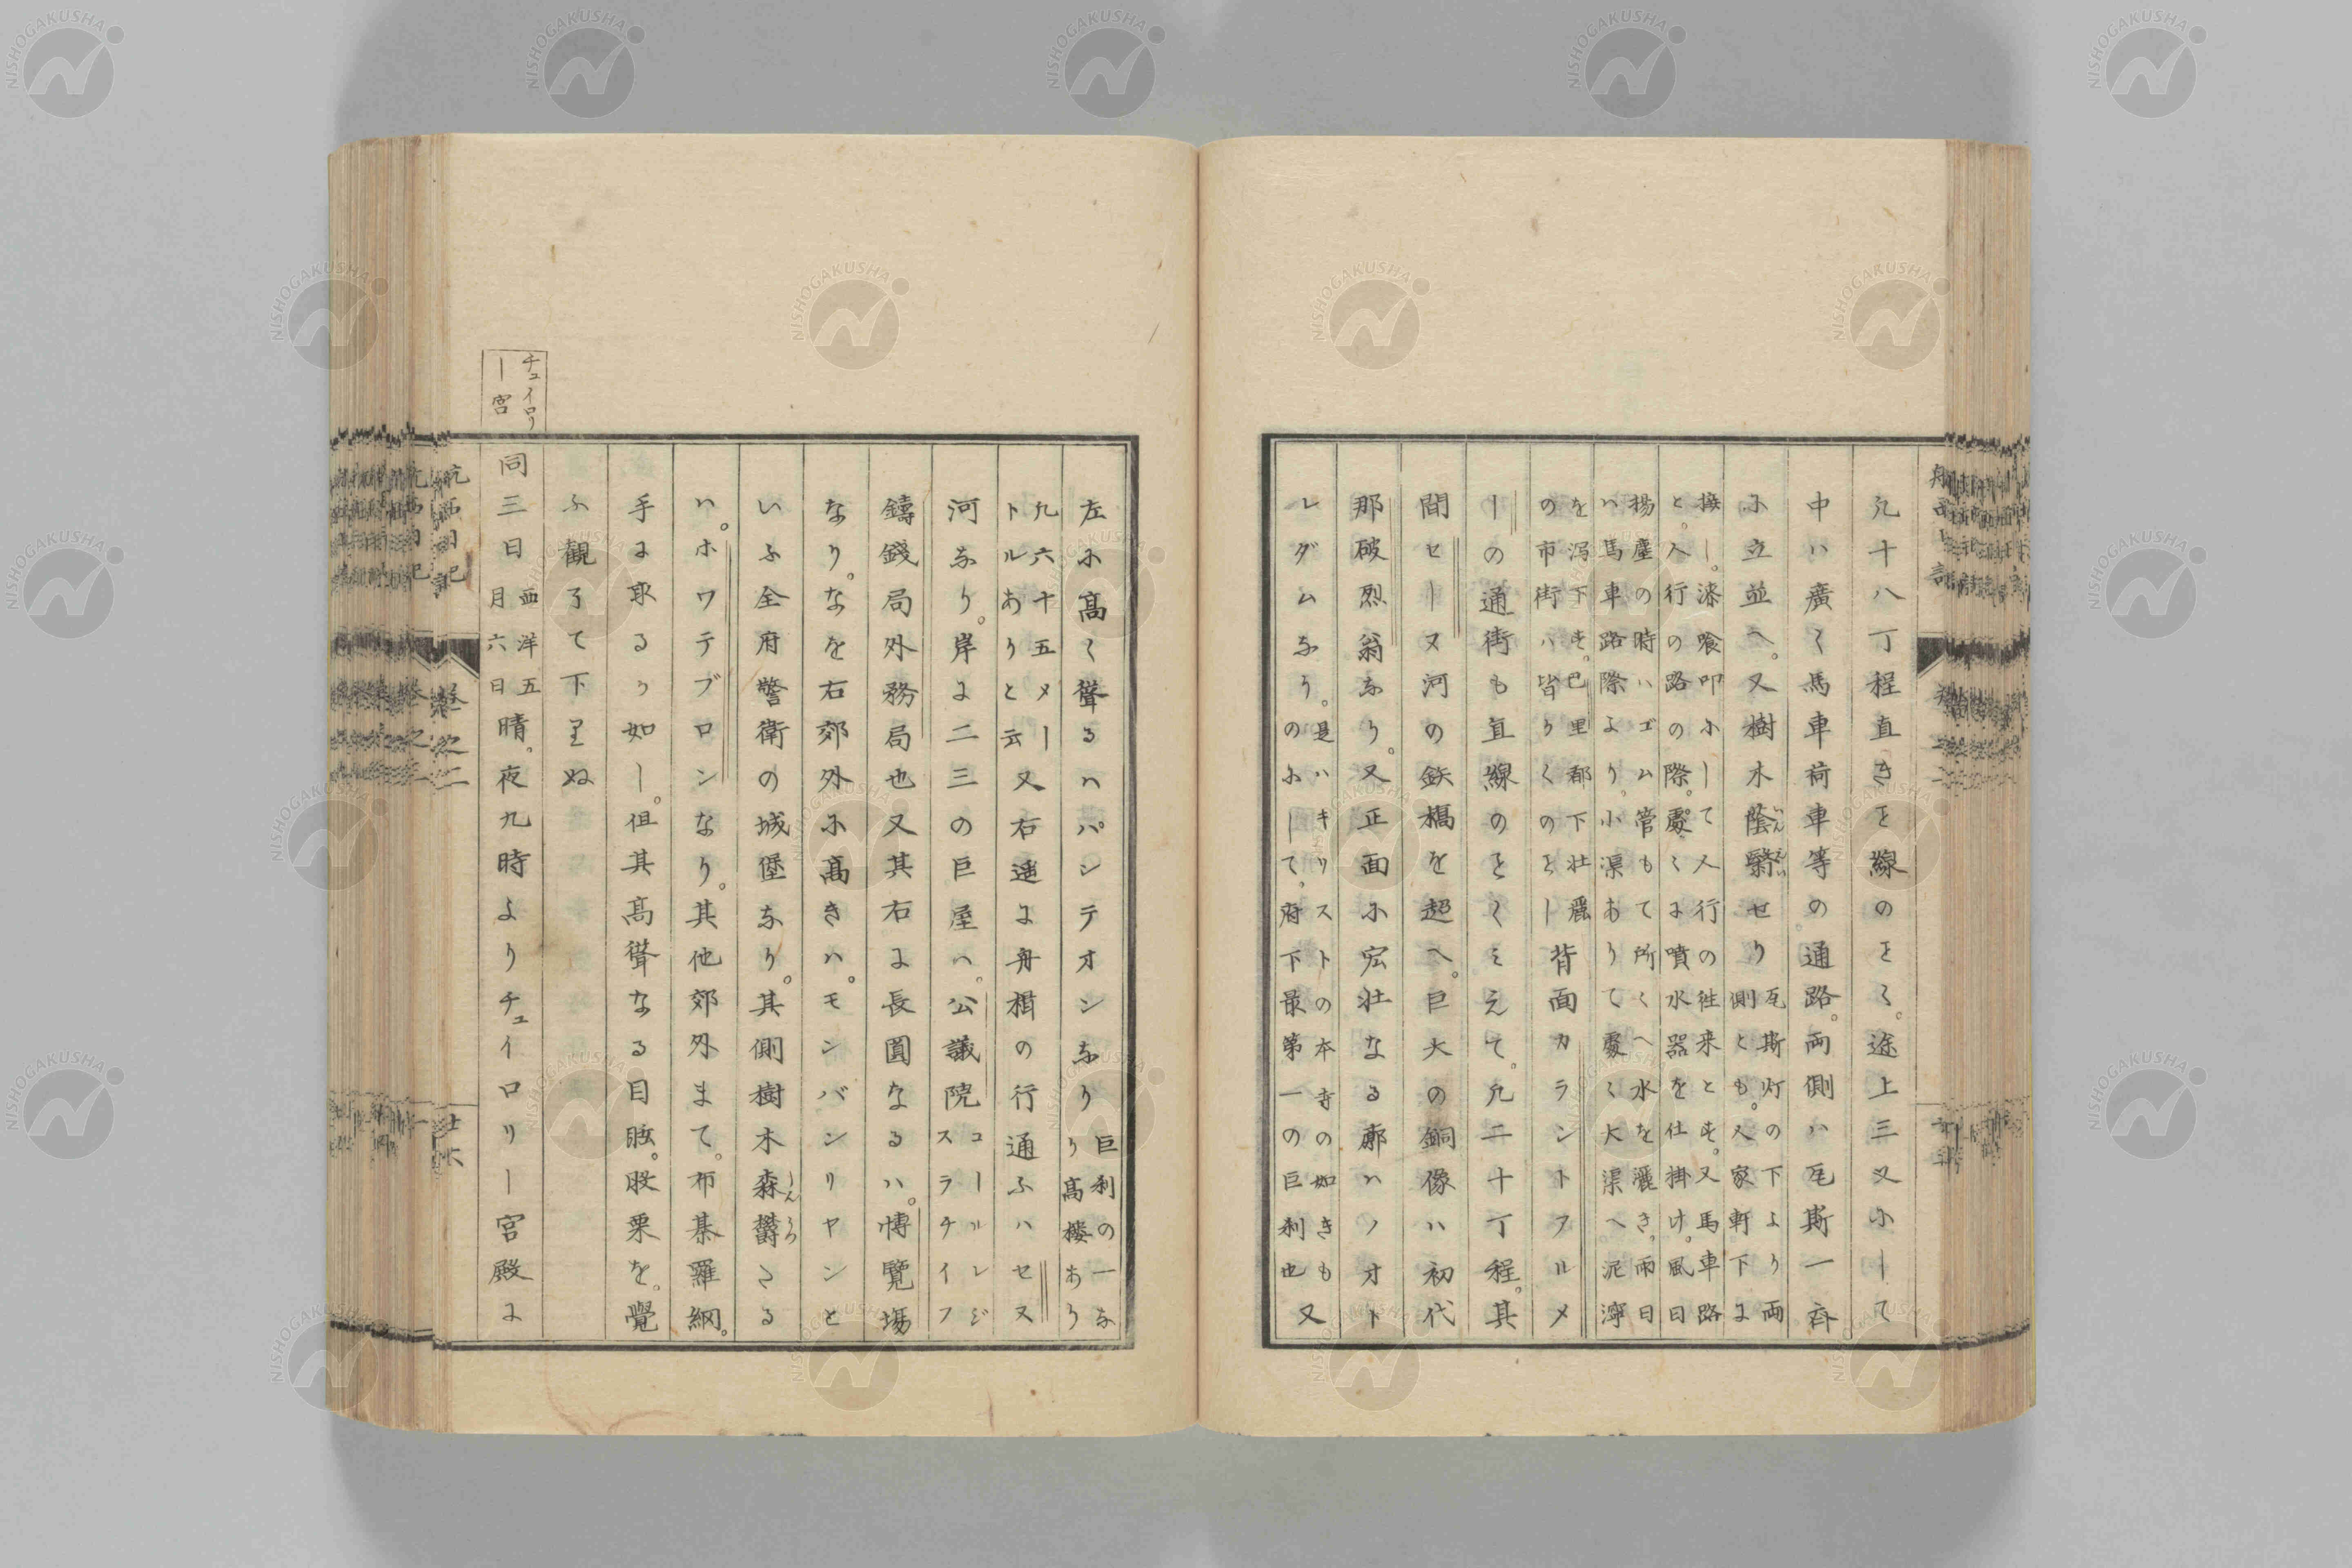 凡十八丁程直きを線のをく。途上三又小ーて
中ハ廣く馬車荷車等の通路。両側ハ瓦斯一斉
小立並へ。又樹木蔭翳せり瓦斯灯の下より両
側とも。人家軒下に
接ー。漆喰叩小ーて人行の徃来とす。又馬車路
と。人行の路の際。處くに噴水器を仕掛け。風日
揚塵の時ハゴム管もて所くへ水を灑き。雨日
ハ馬車路際より。小渠ありて處く大渠へ泥濘
を泻下す。巴里都下壮麗
の市街ハ皆りくのをー背面カラントフルメ
ーの通街も直線のをくミえて。凡二十丁程。其
間セーヌ河の鉄橋を超へ。巨大の銅像ハ初代
那破烈翁なり。又正面小宏壮なる廓ハノオト
レダムなり。是ハキリストの本寺の如きも
の小ーて。府下最第一の巨刹也又
左小高く聳るハパンテオンなり巨刹の一な
り高楼あり
九六十五メー
トルありと云又右遠に舟楫の行通ふハセヌ
河なり。岸に二三の巨屋ハ。公議院コールレジ
スラチイフ
鑄錢局外務局也又其右に長圓なるハ。博覧場
なり。なを右郊外小高きハ。モンバンリヤンと
いふ全府警衛の城堡なり。其側樹木森欝たる
ハ。ホワテブロンなり。其他郊外まて。布棊羅網。
手に取るり如ー。但其高聳なる目眩。股栗を。覺
ふ観了て下里ぬ
チュイロリ
ー宮
同三日西洋五
月六日晴。夜九時よりチュイロリー宮殿に
航西日記
巻之二
十六
NISHOGAKUSHA